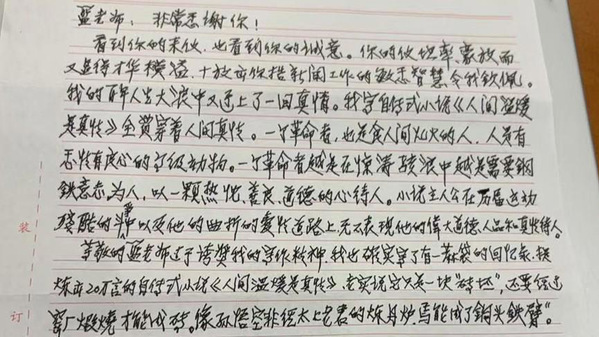 蓝老师，非常感谢你！
看到你的来伙，也看到你的诚意。你的伙坦率、豪放而
又显得才华横溢，十放弃你搭新闻工作的敏志智慧令我钦佩。
我的神人生大浪中又遇上了一回真情。我写自传式小说《人间温暖
是真情》全贯穿着人间真情。一个革命者，也是食人间火的人，人是有
志情有良心的高级动物。一个革命者越是在惊涛骇浪中越是需要钢
铁意志为人，以一颗热忱、善良、道德的心待人。小说主人公在历届运动
残酷的斗以及他的曲折的爱情道路上无不表现他的伟大道德人品和真情待人。
尊敬的蓝老师过于誉奖我的写作精神，我也确实写了有一麻袋的回忆录，提
炼出20万言的自传式小说《人间温暖是真情》，老实说它只是一块"砖坯"，还要经过
窑厂煅烧才能成砖。像孙悟空非经太上老君的炼丹炉，焉能成了"铜头铁臂"。
装
订